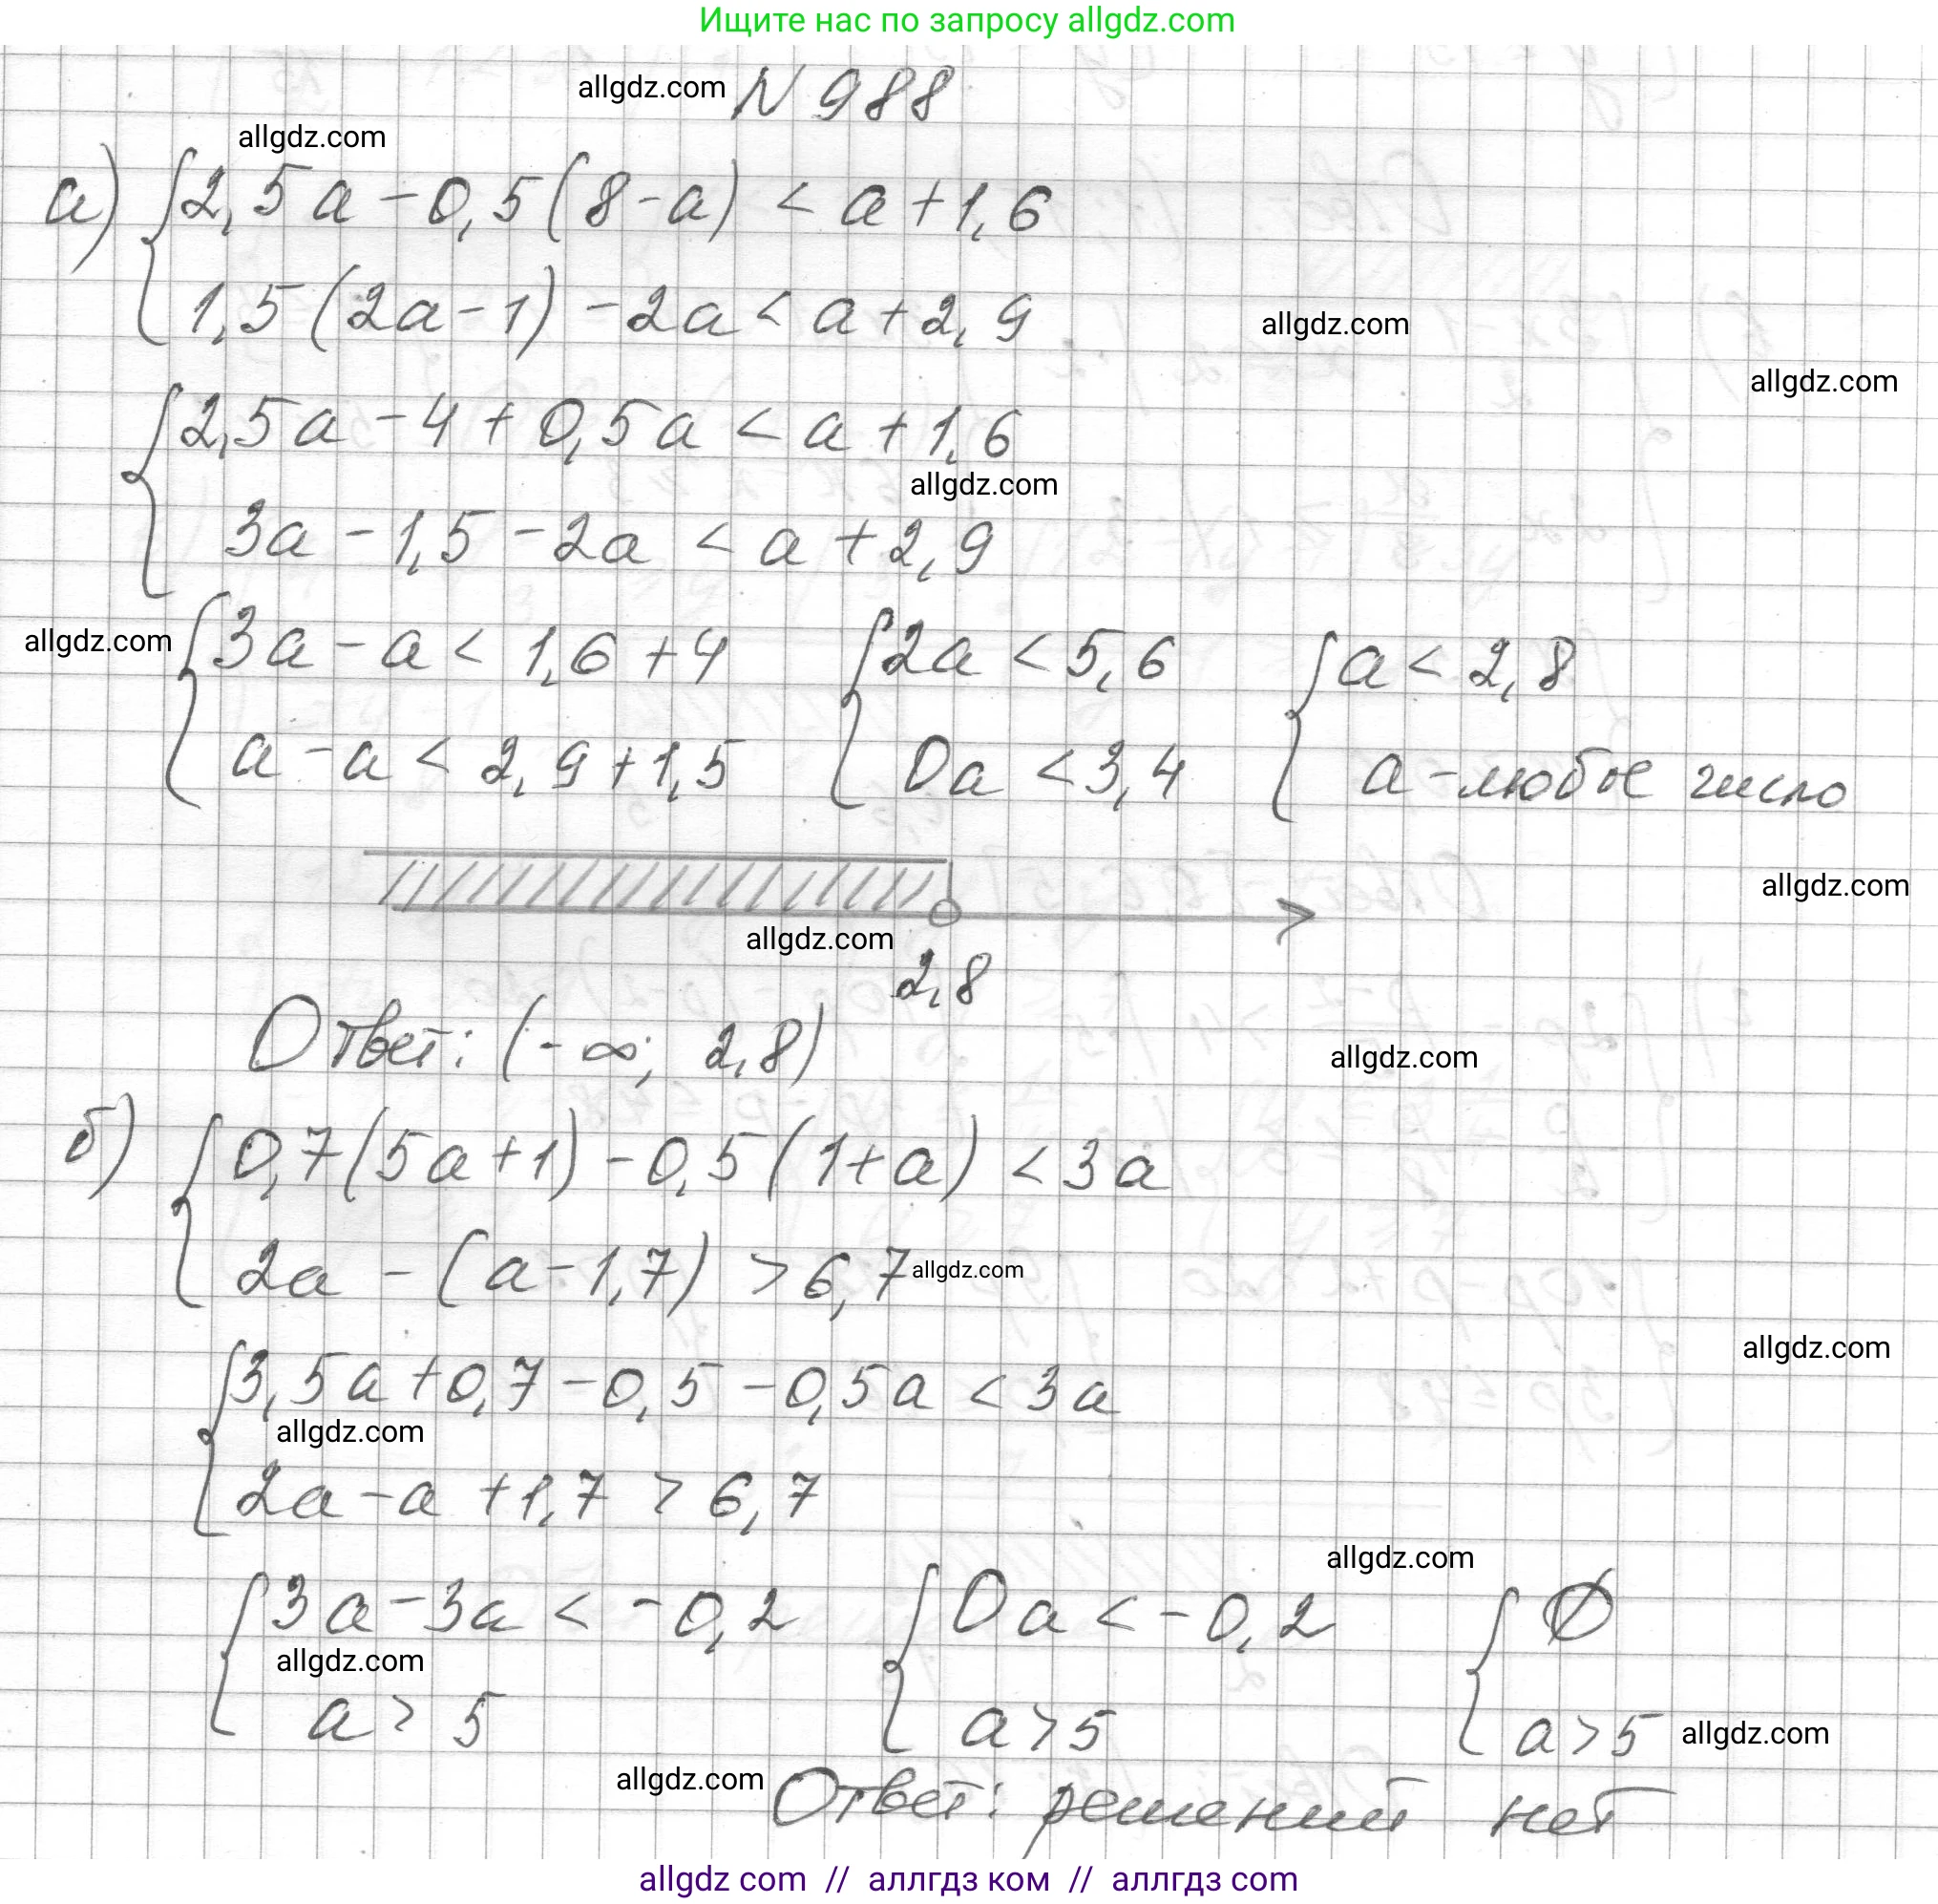 Ищите нас по запросу allgdz.com
allgdz.com N 988
allgdz.com
а) { 2,5a - 0,5(8-a) < a + 1,6
1,5(2a-1) - 2a < a + 2,9
allgdz.com
allgdz.com
{ 2,5a - 4 + 0,5a < a + 1,6
allgdz.com
3a - 1,5 - 2a < a + 2,9
allgdz.com { 3a - a < 1,6 + 4 { 2a < 5,6 { a < 2,8
a - a < 2,9 + 1,5 0a < 3,4 a - любое число
allgdz.com
allgdz.com
2,8
Ответ: (-∞; 2,8)
allgdz.com
б) { 0,7(5a+1) - 0,5(1+a) < 3a
2a - (a - 1,7) > 6,7 allgdz.com
allgdz.com
{ 3,5a + 0,7 - 0,5 - 0,5a < 3a
allgdz.com
2a - a + 1,7 > 6,7
allgdz.com
{ 3a - 3a < -0,2 { 0a < -0,2 { ∅
allgdz.com
a > 5 a > 5 a > 5 allgdz.com
allgdz.com Ответ: решений нет
allgdz com // аллгдз ком // аллгдз com